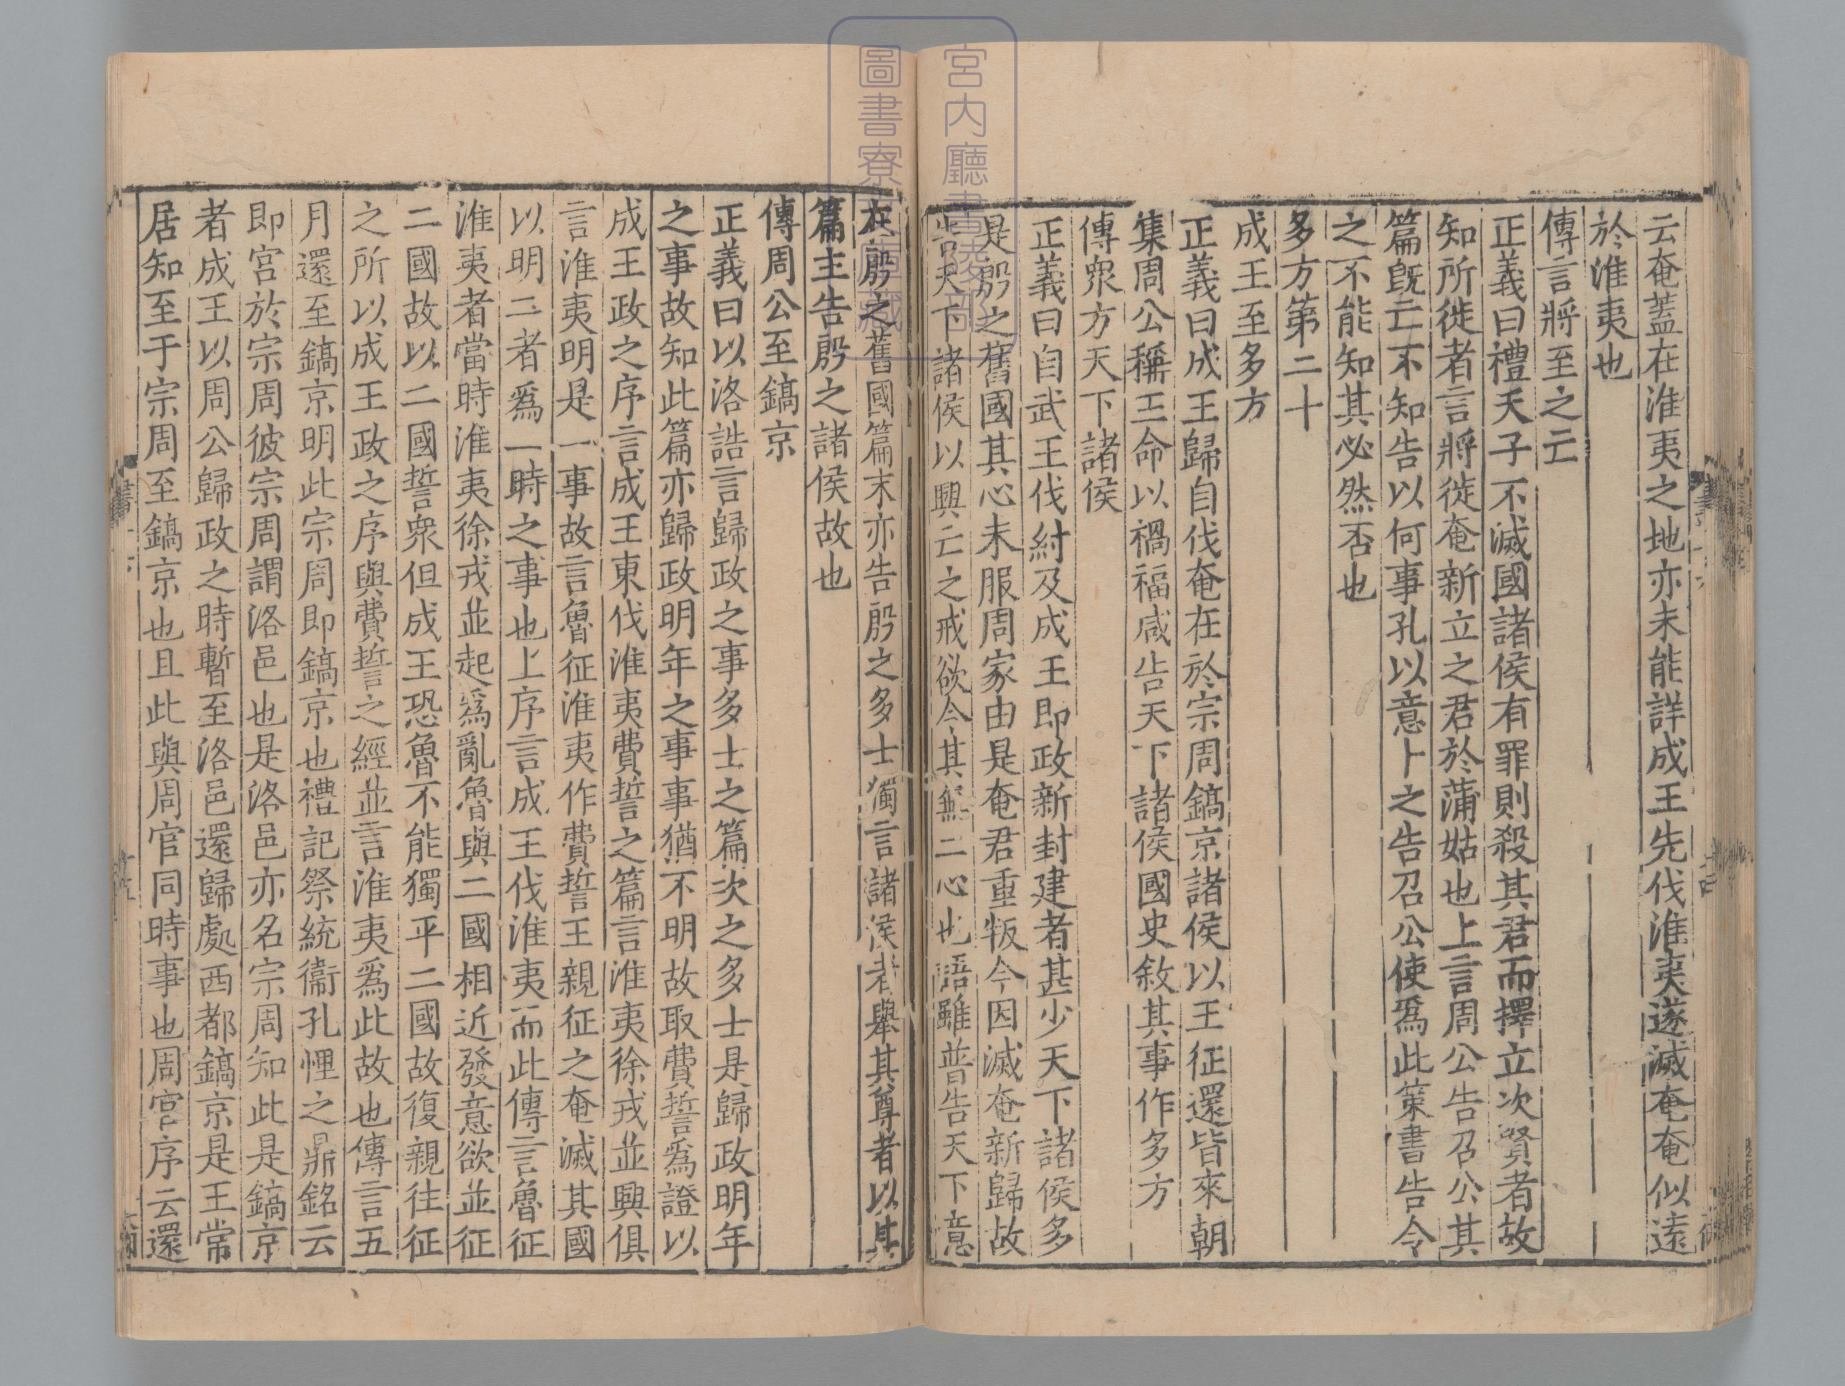 云奄蓋在淮夷之地亦未能詳成王先伐淮夷遂滅奄奄似遠
於淮夷也
傳言將至之亡
正義曰禮天子不滅國諸侯有罪則殺其君而擇立次賢者故
知所徙者言將徙奄新立之君於蒲姑也上言周公告召公其
篇旣亡不知告以何事孔以意卜之告召公使爲此策書告令
之不能知其必然否也
多方第二十
成王至多方
正義曰成王歸自伐奄在於宗周鎬京諸侯以王征還皆來朝
集周公稱王命以禍福咸告天下諸侯國史敘其事作多方
傳眾方天下諸侯
正義曰自武王伐紂及成王即政新封建者甚少天下諸侯多
是殷之舊國其心未服周家由是奄君重叛今因滅奄新歸故
告天下諸侯以興亡之戒欲令其無二心也語雖普告天下意
在殷之舊國篇末亦告殷之多士獨言諸侯者舉其尊者以其
篇主告殷之諸侯故也
傳周公至鎬京
正義曰以洛誥言歸政之事多士之篇次之多士是歸政明年
之事故知此篇亦歸政明年之事事猶不明故取費誓爲證以
成王政之序言成王東伐淮夷費誓之篇言淮夷徐戎並興俱
言淮夷明是一事故言魯征淮夷作費誓王親征之奄滅其國
以明二者爲一時之事也上序言成王伐淮夷而此傳言魯征
淮夷者當時淮夷徐戎並起爲亂魯與二國相近發意欲並征
二國故以二國誓眾但成王恐魯不能獨平二國故復親往征
之所以成王政之序與費誓之經並言淮夷爲此故也傳言五
月還至鎬京明此宗周即鎬京也禮記祭統衞孔悝之鼎銘云
即宮於宗周彼宗周謂洛邑也是洛邑亦名宗周知此是鎬京
者成王以周公歸政之時暫至洛邑還歸處西都鎬京是王常
居知至于宗周至鎬京也且此與周官同時事也周官序云還
宮內廳書陵部
圖書寮